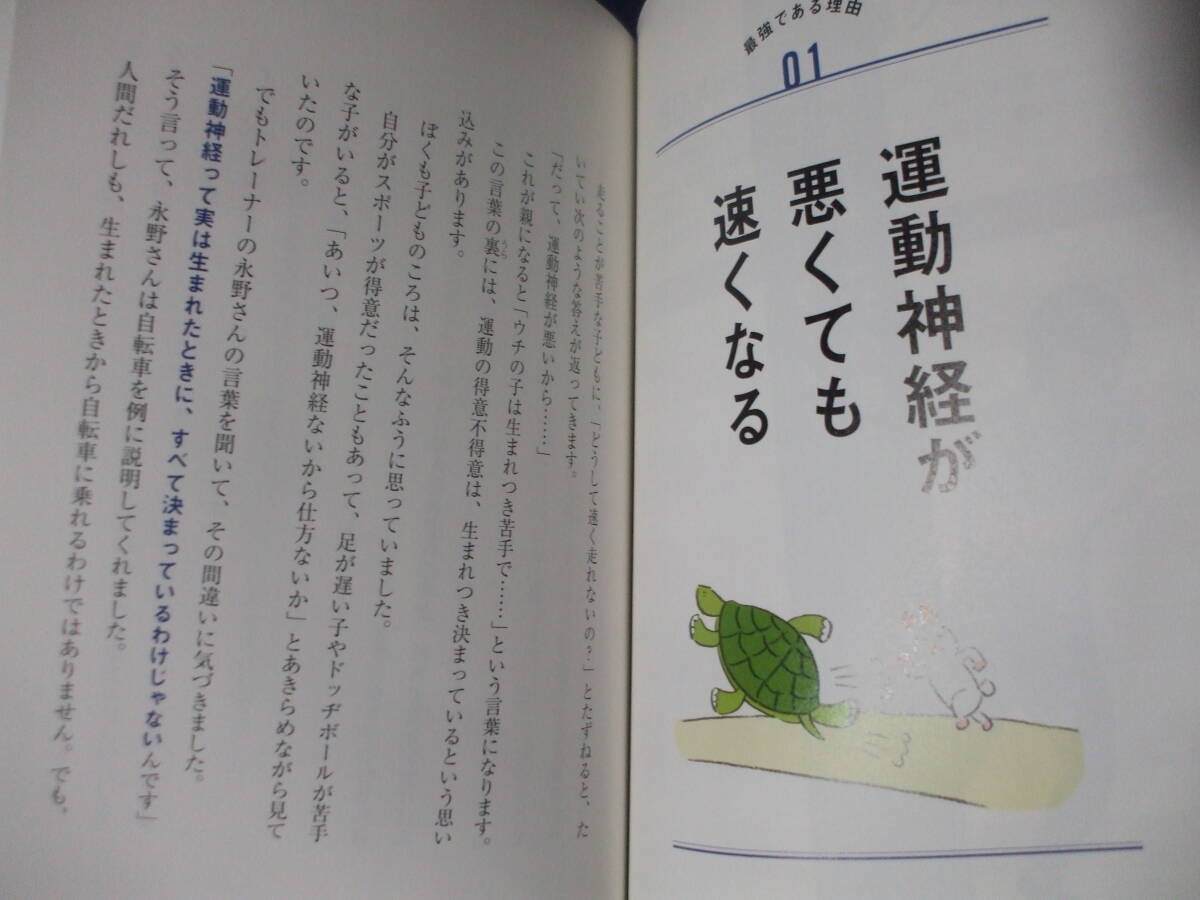 最強である理由
01
運動神経が
悪くても
速くなる
走ることが苦手な子どもに、「どうして速く走れないの？」とたずねると、た
いてい次のような答えが返ってきます。
「だって、運動神経が悪いから……」
これが親になると「ウチの子は生まれつき苦手で……」という言葉になります。
この言葉の裏には、運動の得意不得意は、生まれつき決まっているという思い
込みがあります。
ぼくも子どものころは、そんなふうに思っていました。
自分がスポーツが得意だったこともあって、足が遅い子やドッヂボールが苦手
な子がいると、「あいつ、運動神経ないから仕方ないか」とあきらめながら見て
いたのです。
でもトレーナーの永野さんの言葉を聞いて、その間違いに気づきました。
「運動神経って実は生まれたときに、すべて決まっているわけじゃないんです」
そう言って、永野さんは自転車を例に説明してくれました。
人間だれしも、生まれたときから自転車に乗れるわけではありません。でも、